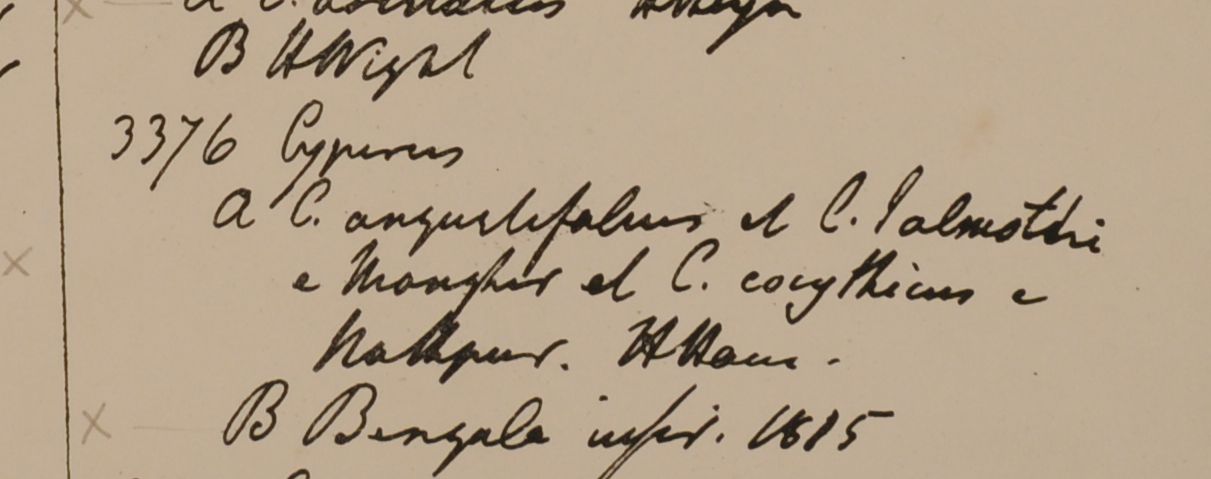 B HWight
3376 Cyperus
a C. angustifolius et C. Salmothri
e Monghir et C. cocythicus e
Nathpur. HHam.
B Bengala infer. 1815